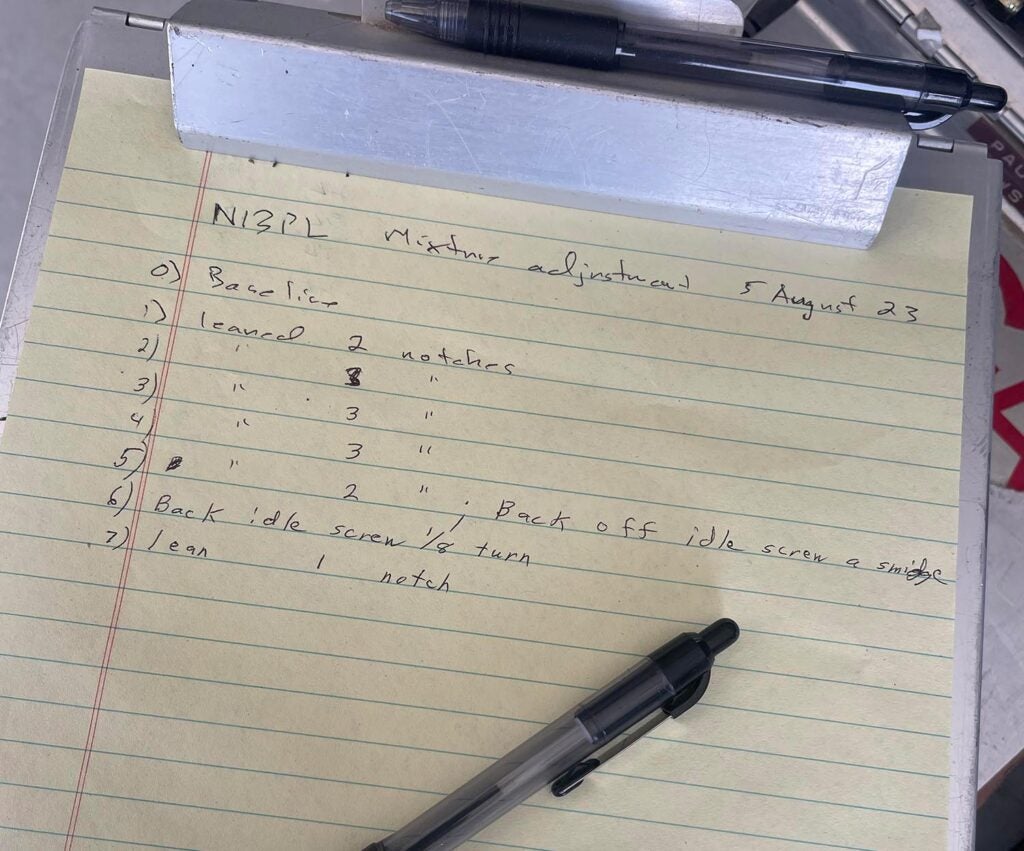 N13PL Mixture adjustment 5 August 23
0) Baseline
1) leaned 2 notches
2) " "
3) " 3 "
4) " 3 "
5) " 2 " ; Back off idle screw a smidge
6) Back idle screw 1/8 turn
7) lean 1 notch